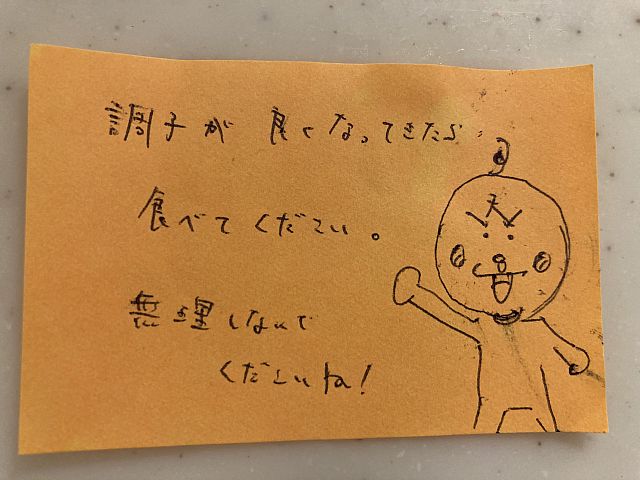 調子が良くなってきたら
食べてください。
無理しないで
くださいね!
天